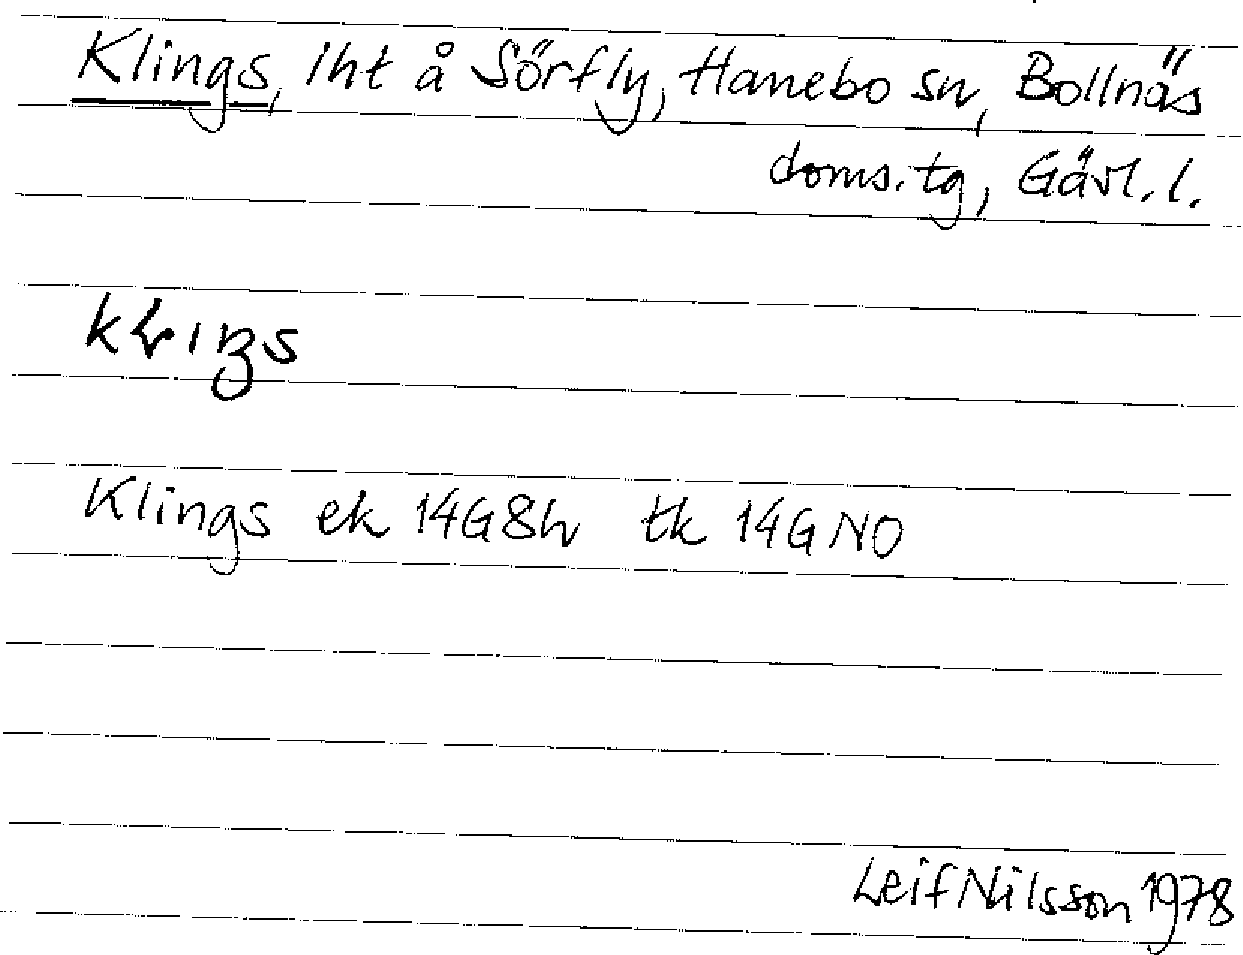 Klings, lht å Sörfly, Hanebo sn, Bollnäs
doms. tg, Gävl. l.
Klings ek 14G8h tk 14GNO
Leif Nilsson 1978